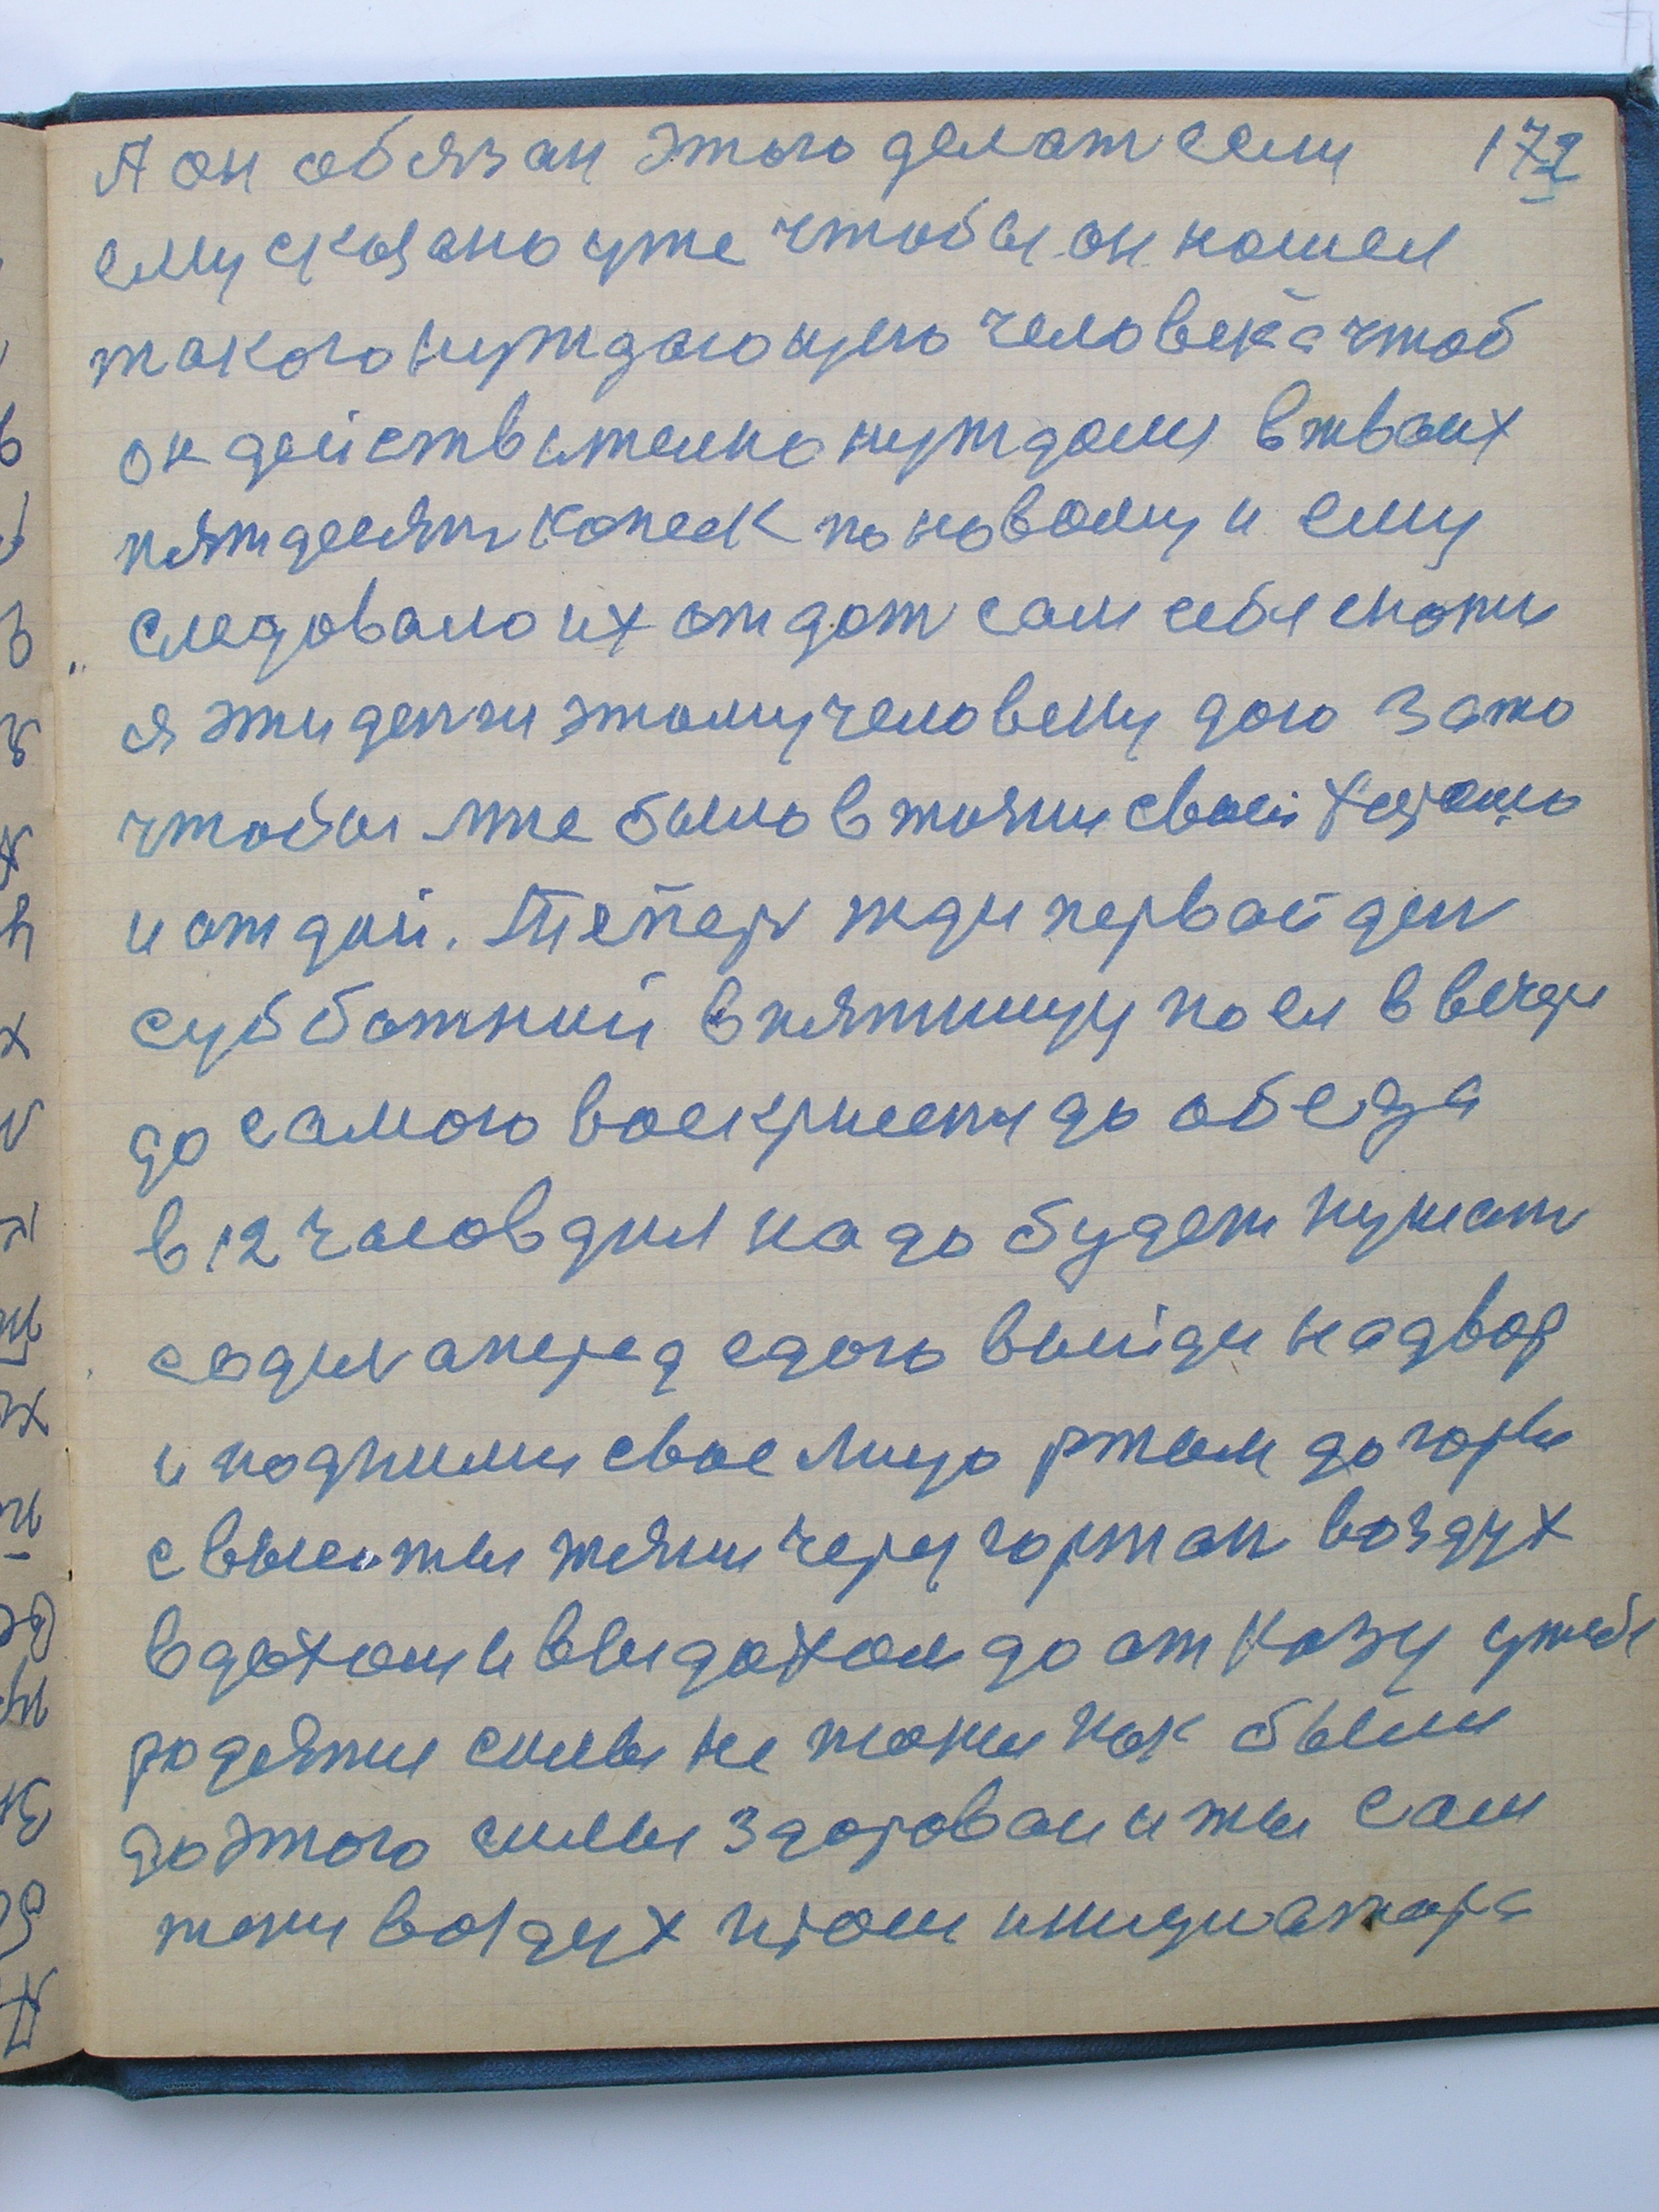 А он обязан этого делат если 172
ему сказано уже чтобы он нашел
такого нуждающего человека чтоб
он действително нуждался в твоих
пятдесят копеек по новому и ему
следовало их отдат сам себе скажи
я эти денги этому человеку даю за то
чтобы мне было в жизни своей хорошо
и отдай. Тепер жди первай ден
субботний в пятницу поел в вечери
до самого воскрисеня до обеда
в 12 часов дня надо будет кушат
садис а перед едою выйди на двор
и подними свое лицо ртом до горы
с высоты тяни через гортан воздух
вдохом и выдохом до отказу у тебя
родятся силы не такия как были
до этого силы здоровая и ты сам
тяни воздух проси инициатора